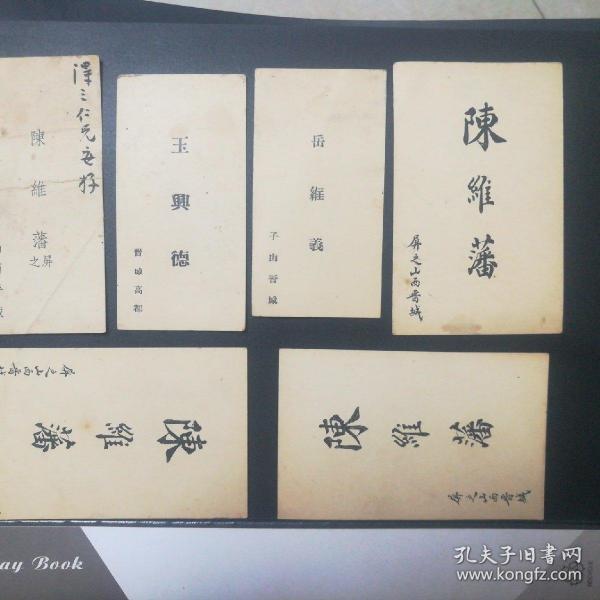 陳維藩
屏之
王興德
晉城高都
岳維義
子由晉城
陳維藩
屏之山西晉城
屏之山西晉城
陳維藩
陳維藩
屏之山西晉城
ay Book
孔夫子旧书网
www.kongfz.com